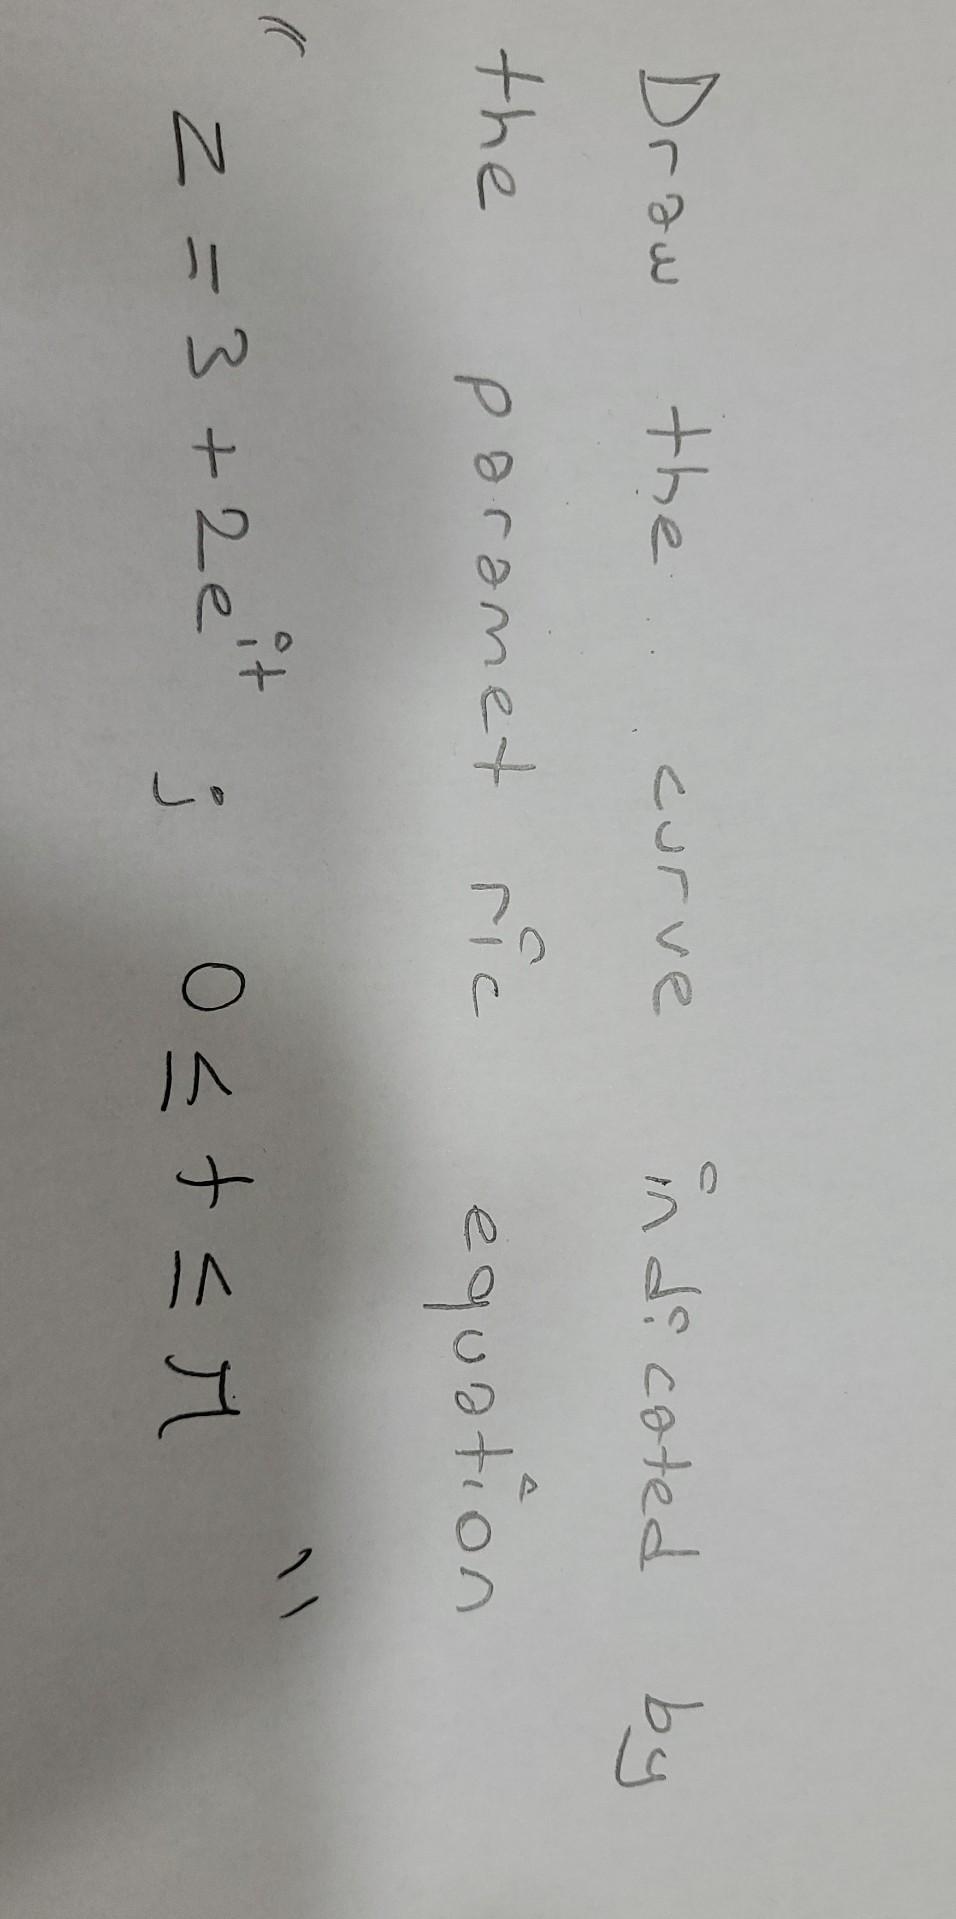 Draw the curve indicated by
the parametric equation
" z = 3 + 2e^{it} ; 0 ≤ t ≤ π "